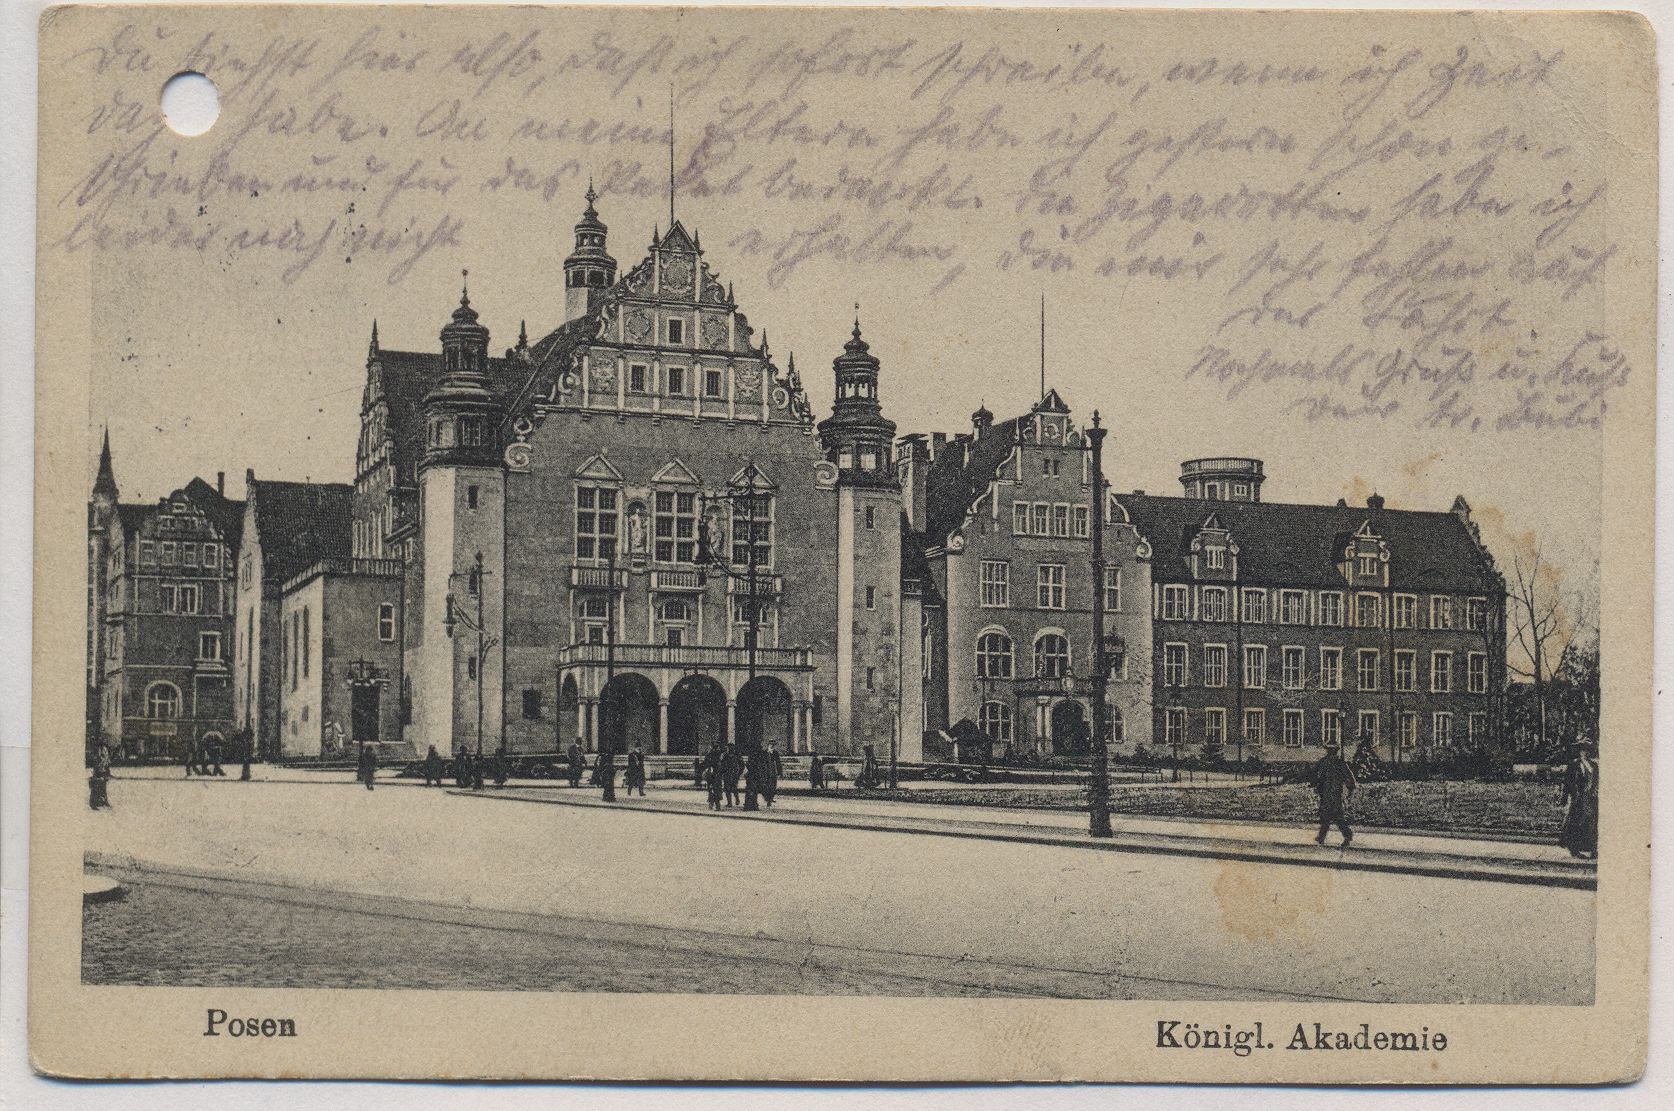 Du siehst hier also, daß ich sofort schreibe, wenn ich Zeit
dazu habe. An meine Eltern habe ich gestern schon ge-
schrieben und für das Paket bedankt. Die Zigarotten habe ich
leider noch nicht erhalten, die mir sehr fehlen auf
der Fahrt.
Nochmals Gruß u. Kuß
Dein tr. Bubi
Posen
Königl. Akademie